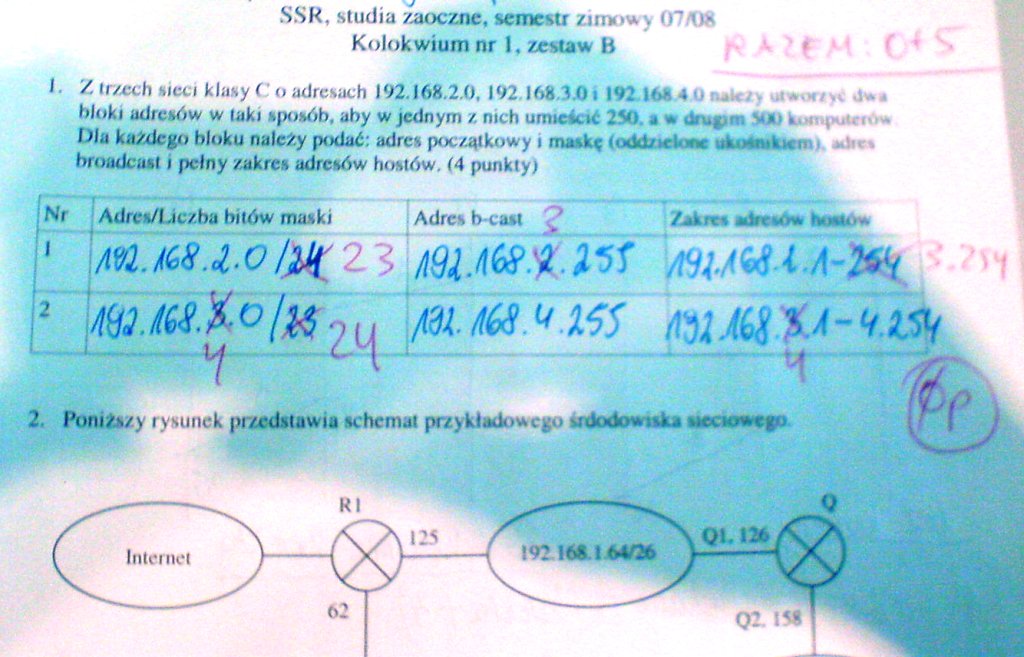 SSR, studia zaoczne, semestr zimowy 07/08
Kolokwium nr 1, zestaw B
RAZEM: 0+5
1. Z trzech sieci klasy C o adresach 192.168.2.0, 192.168.3.0 i 192.168.4.0 należy utworzyć dwa
bloki adresów w taki sposób, aby w jednym z nich umieścić 250, a w drugim 500 komputerów.
Dla każdego bloku należy podać: adres początkowy i maskę (oddzielone ukośnikiem), adres
broadcast i pełny zakres adresów hostów. (4 punkty)
Nr Adres/Liczba bitów maski Adres b-cast Zakres adresów hostów
3
1 192.168.2.0/24 23 192.168.2.255 192.168.2.1-254 3.254
2 192.168.3.0/23 24 192.168.4.255 192.168.3.1-4.254
4 4
0p
2. Poniższy rysunek przedstawia schemat przykładowego śrdodowiska sieciowego.
R1 Q
Internet 125 192.168.1.64/26 Q1, 126
62 Q2, 158